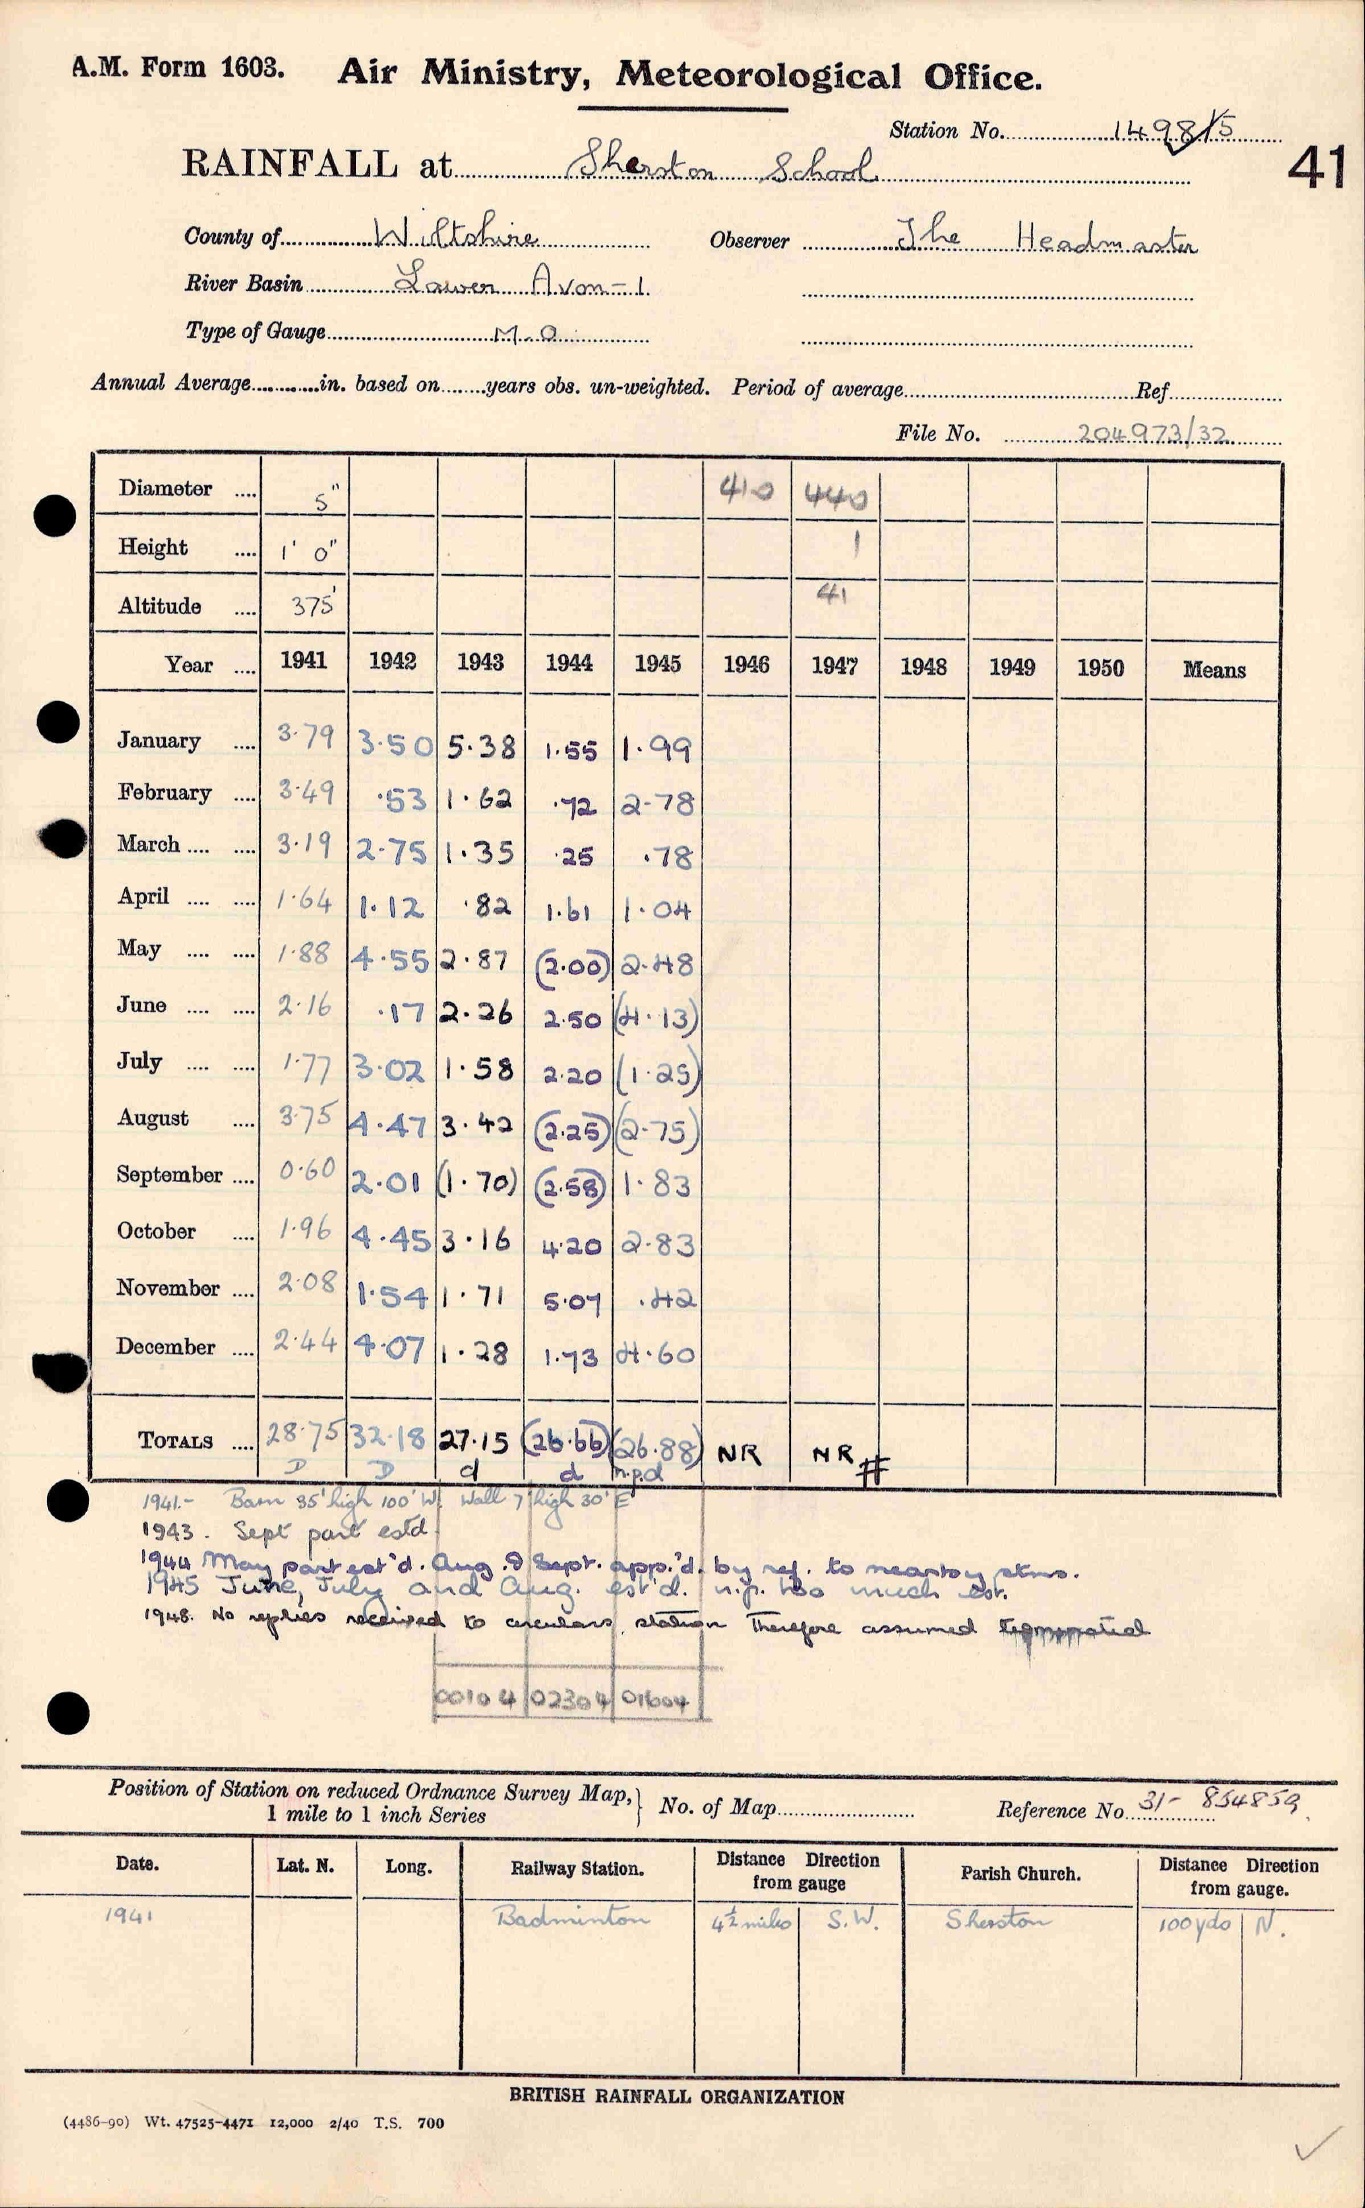 A.M. Form 1603. Air Ministry, Meteorological Office.
Station No. 1498/5
41
RAINFALL at Sherston School.
County of Wiltshire Observer The Headmaster
River Basin Lower Avon-1
Type of Gauge M.O
Annual Average in. based on years obs. un-weighted. Period of average Ref
File No. 204973/32
Diameter 5" 410 440
Height 1' 0" 1
Altitude 375' 41
Year 1941 1942 1943 1944 1945 1946 1947 1948 1949 1950 Means
January 3.79 3.50 5.38 1.55 1.99
February 3.49 .53 1.62 .72 2.78
March 3.19 2.75 1.35 .25 .78
April 1.64 1.12 .82 1.61 1.04
May 1.88 4.55 2.87 (2.00) 2.48
June 2.16 .17 2.26 2.50 (4.13)
July 1.77 3.02 1.58 2.20 (1.25)
August 3.75 4.47 3.42 (2.25) (2.75)
September 0.60 2.01 (1.70) (2.58) 1.83
October 1.96 4.45 3.16 4.20 2.83
November 2.08 1.54 1.71 5.07 .42
December 2.44 4.07 1.28 1.73 4.60
TOTALS 28.75 32.18 27.15 (26.66) (26.88) NR NR #
D D d d n.p.d
1941.- Barn 35' high 100' W. Wall 7' high 30' E
1943. Sept part estd
1944 May part est'd. Aug & Sept. app.'d. by ref. to nearby stns.
1945 June, July and Aug. est'd. n.p. too much est.
1948. No replies received to circulars, station therefore assumed terminated
00104 02304 01604
Position of Station on reduced Ordnance Survey Map, 1 mile to 1 inch Series } No. of Map Reference No. 31- 854859
Date. Lat. N. Long. Railway Station. Distance Direction from gauge Parish Church. Distance Direction from gauge.
1941 Badminton 4½ miles S.W. Sherston 100 yds N.
BRITISH RAINFALL ORGANIZATION
(4486-90) Wt. 47525-4471 12,000 2/40 T.S. 700